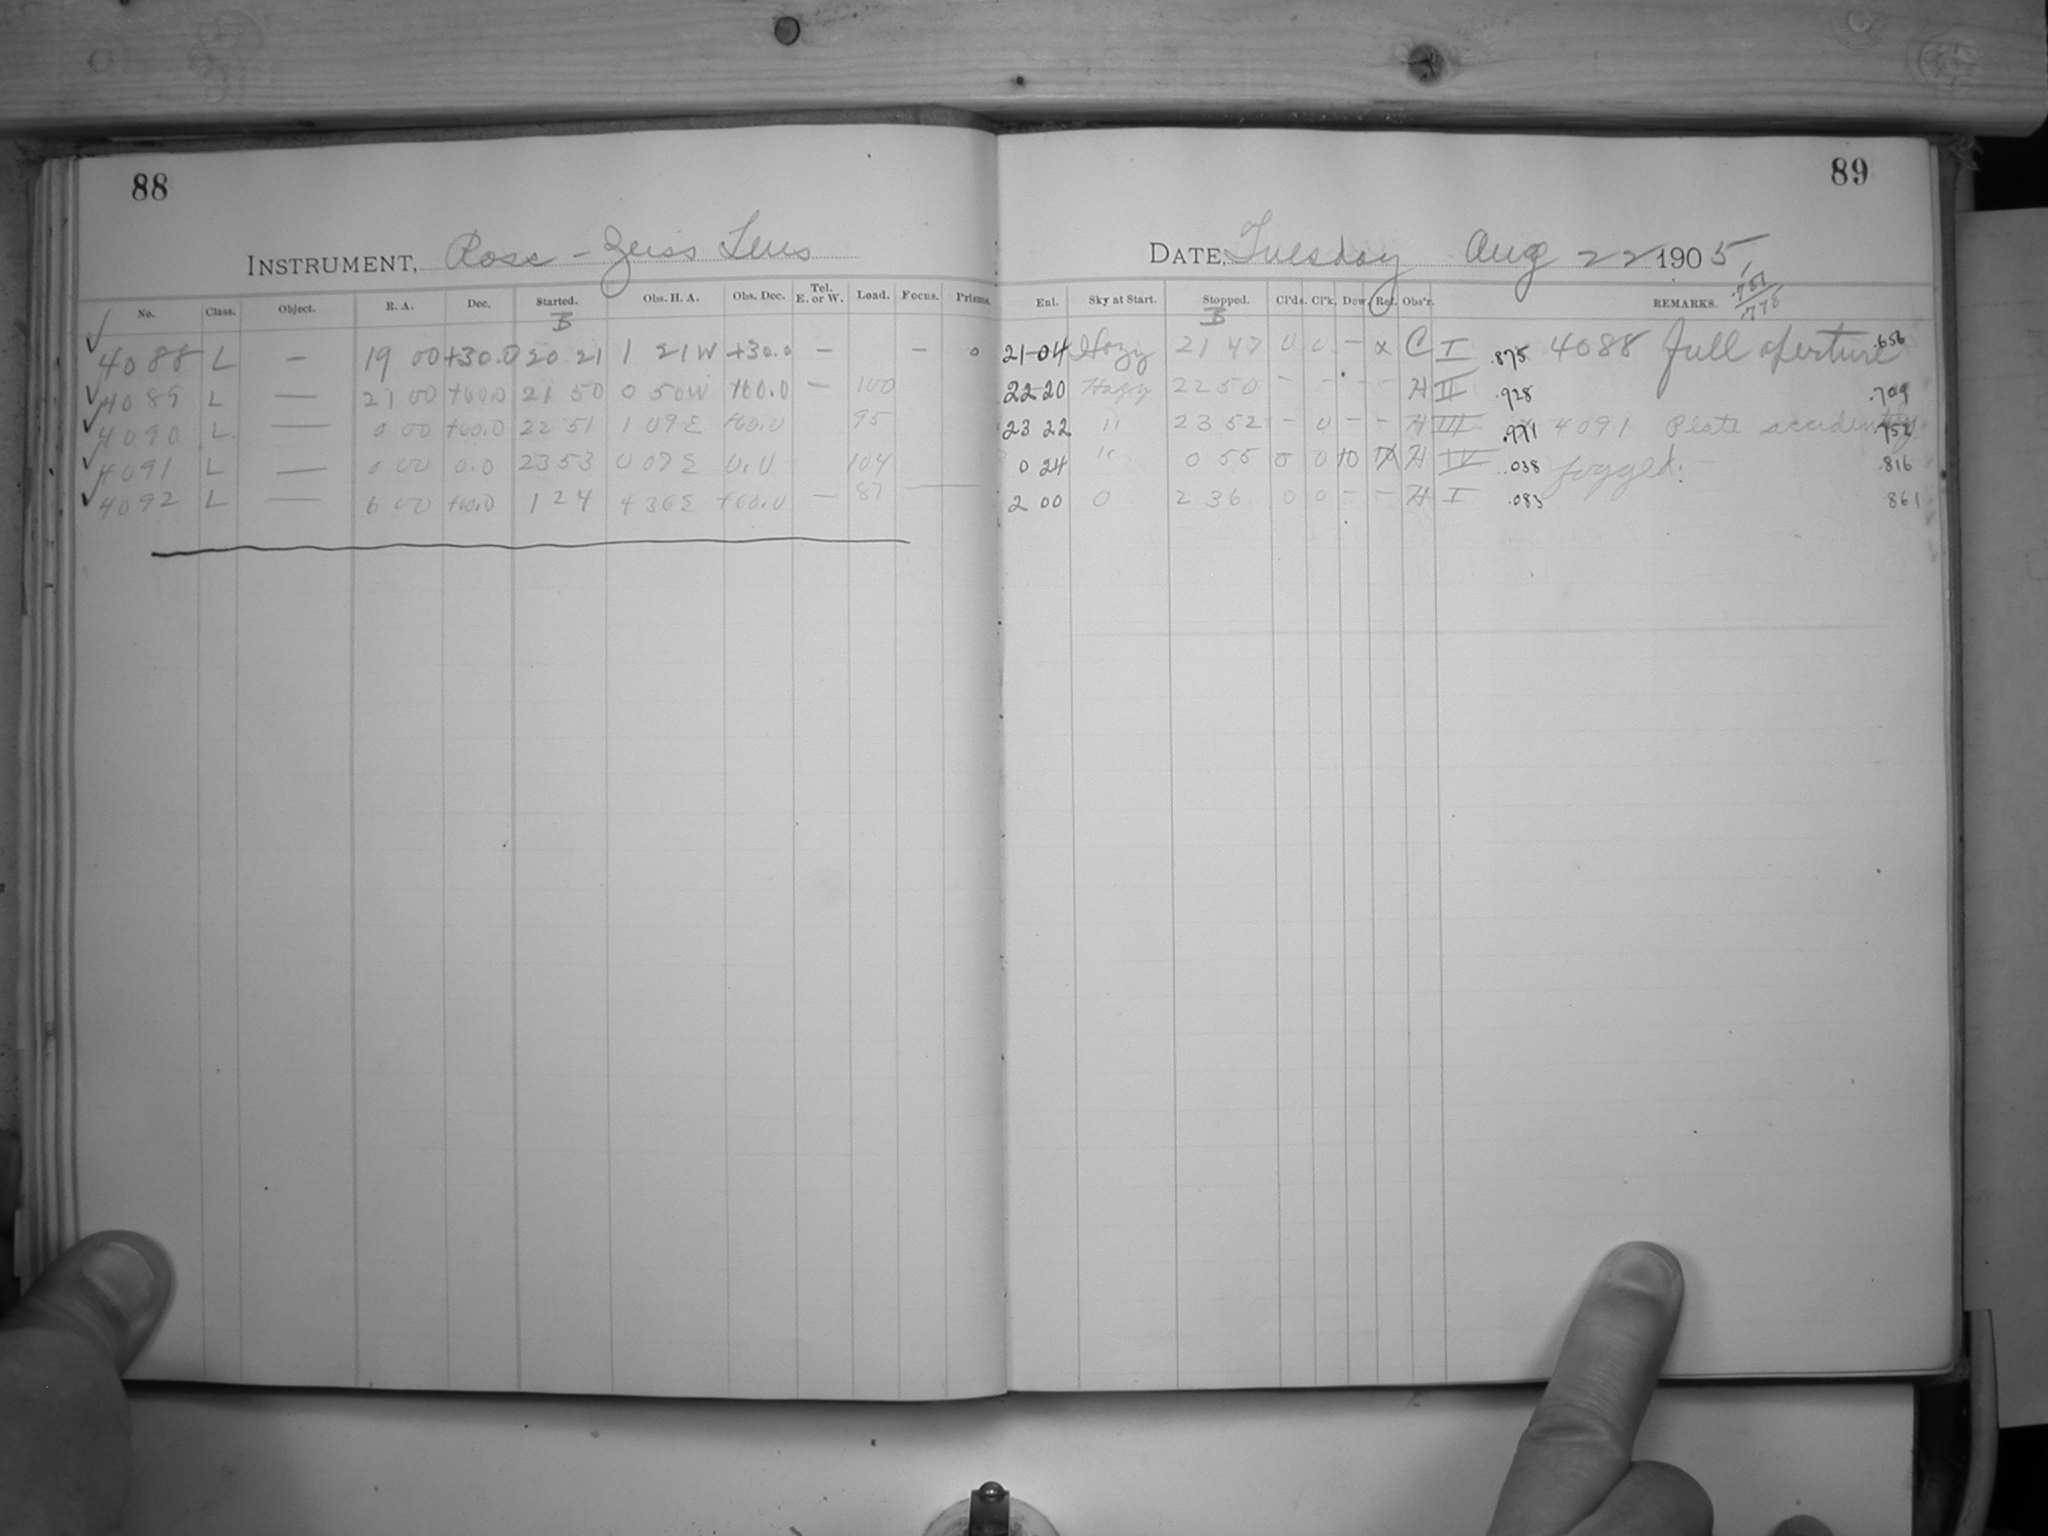 88
89
INSTRUMENT, Ross - Zeiss Lens
DATE, Tuesday Aug 22 1905,
.787
.778
No. Class. Object. R. A. Dec. Started. Obs. H. A. Obs. Dec. Tel. E. or W. Load. Focus. Prisms. Enl. Sky at Start. Stopped. Cl'ds. Cl'k. Dew. Ref. Obs'r. REMARKS.
✓ 4088 L — 19 00 +30.0 20 21 1 21 W +30.0 — — 0 21-04 Hazy 21 47 0 0 — x C I .875 4088 Full aperture .656
✓ 4089 L — 21 00 +60.0 21 50 0 50 W +60.0 — 100 22 20 Hazy 22 50 - - - - H II .928 .709
✓ 4090 L — 0 00 +60.0 22 51 1 09 E +60.0 95 23 22 " 23 52 - 0 - - H III .971 4091 Plate accidently .752
✓ 4091 L — 0 00 0.0 23 53 0 07 E 0.0 104 0 24 " 0 55 0 0 10 H IV .038 fogged. .816
✓ 4092 L — 6 00 +60.0 1 24 4 36 E +60.0 — 87 — 2 00 0 2 36 0 0 - - H I .083 .861